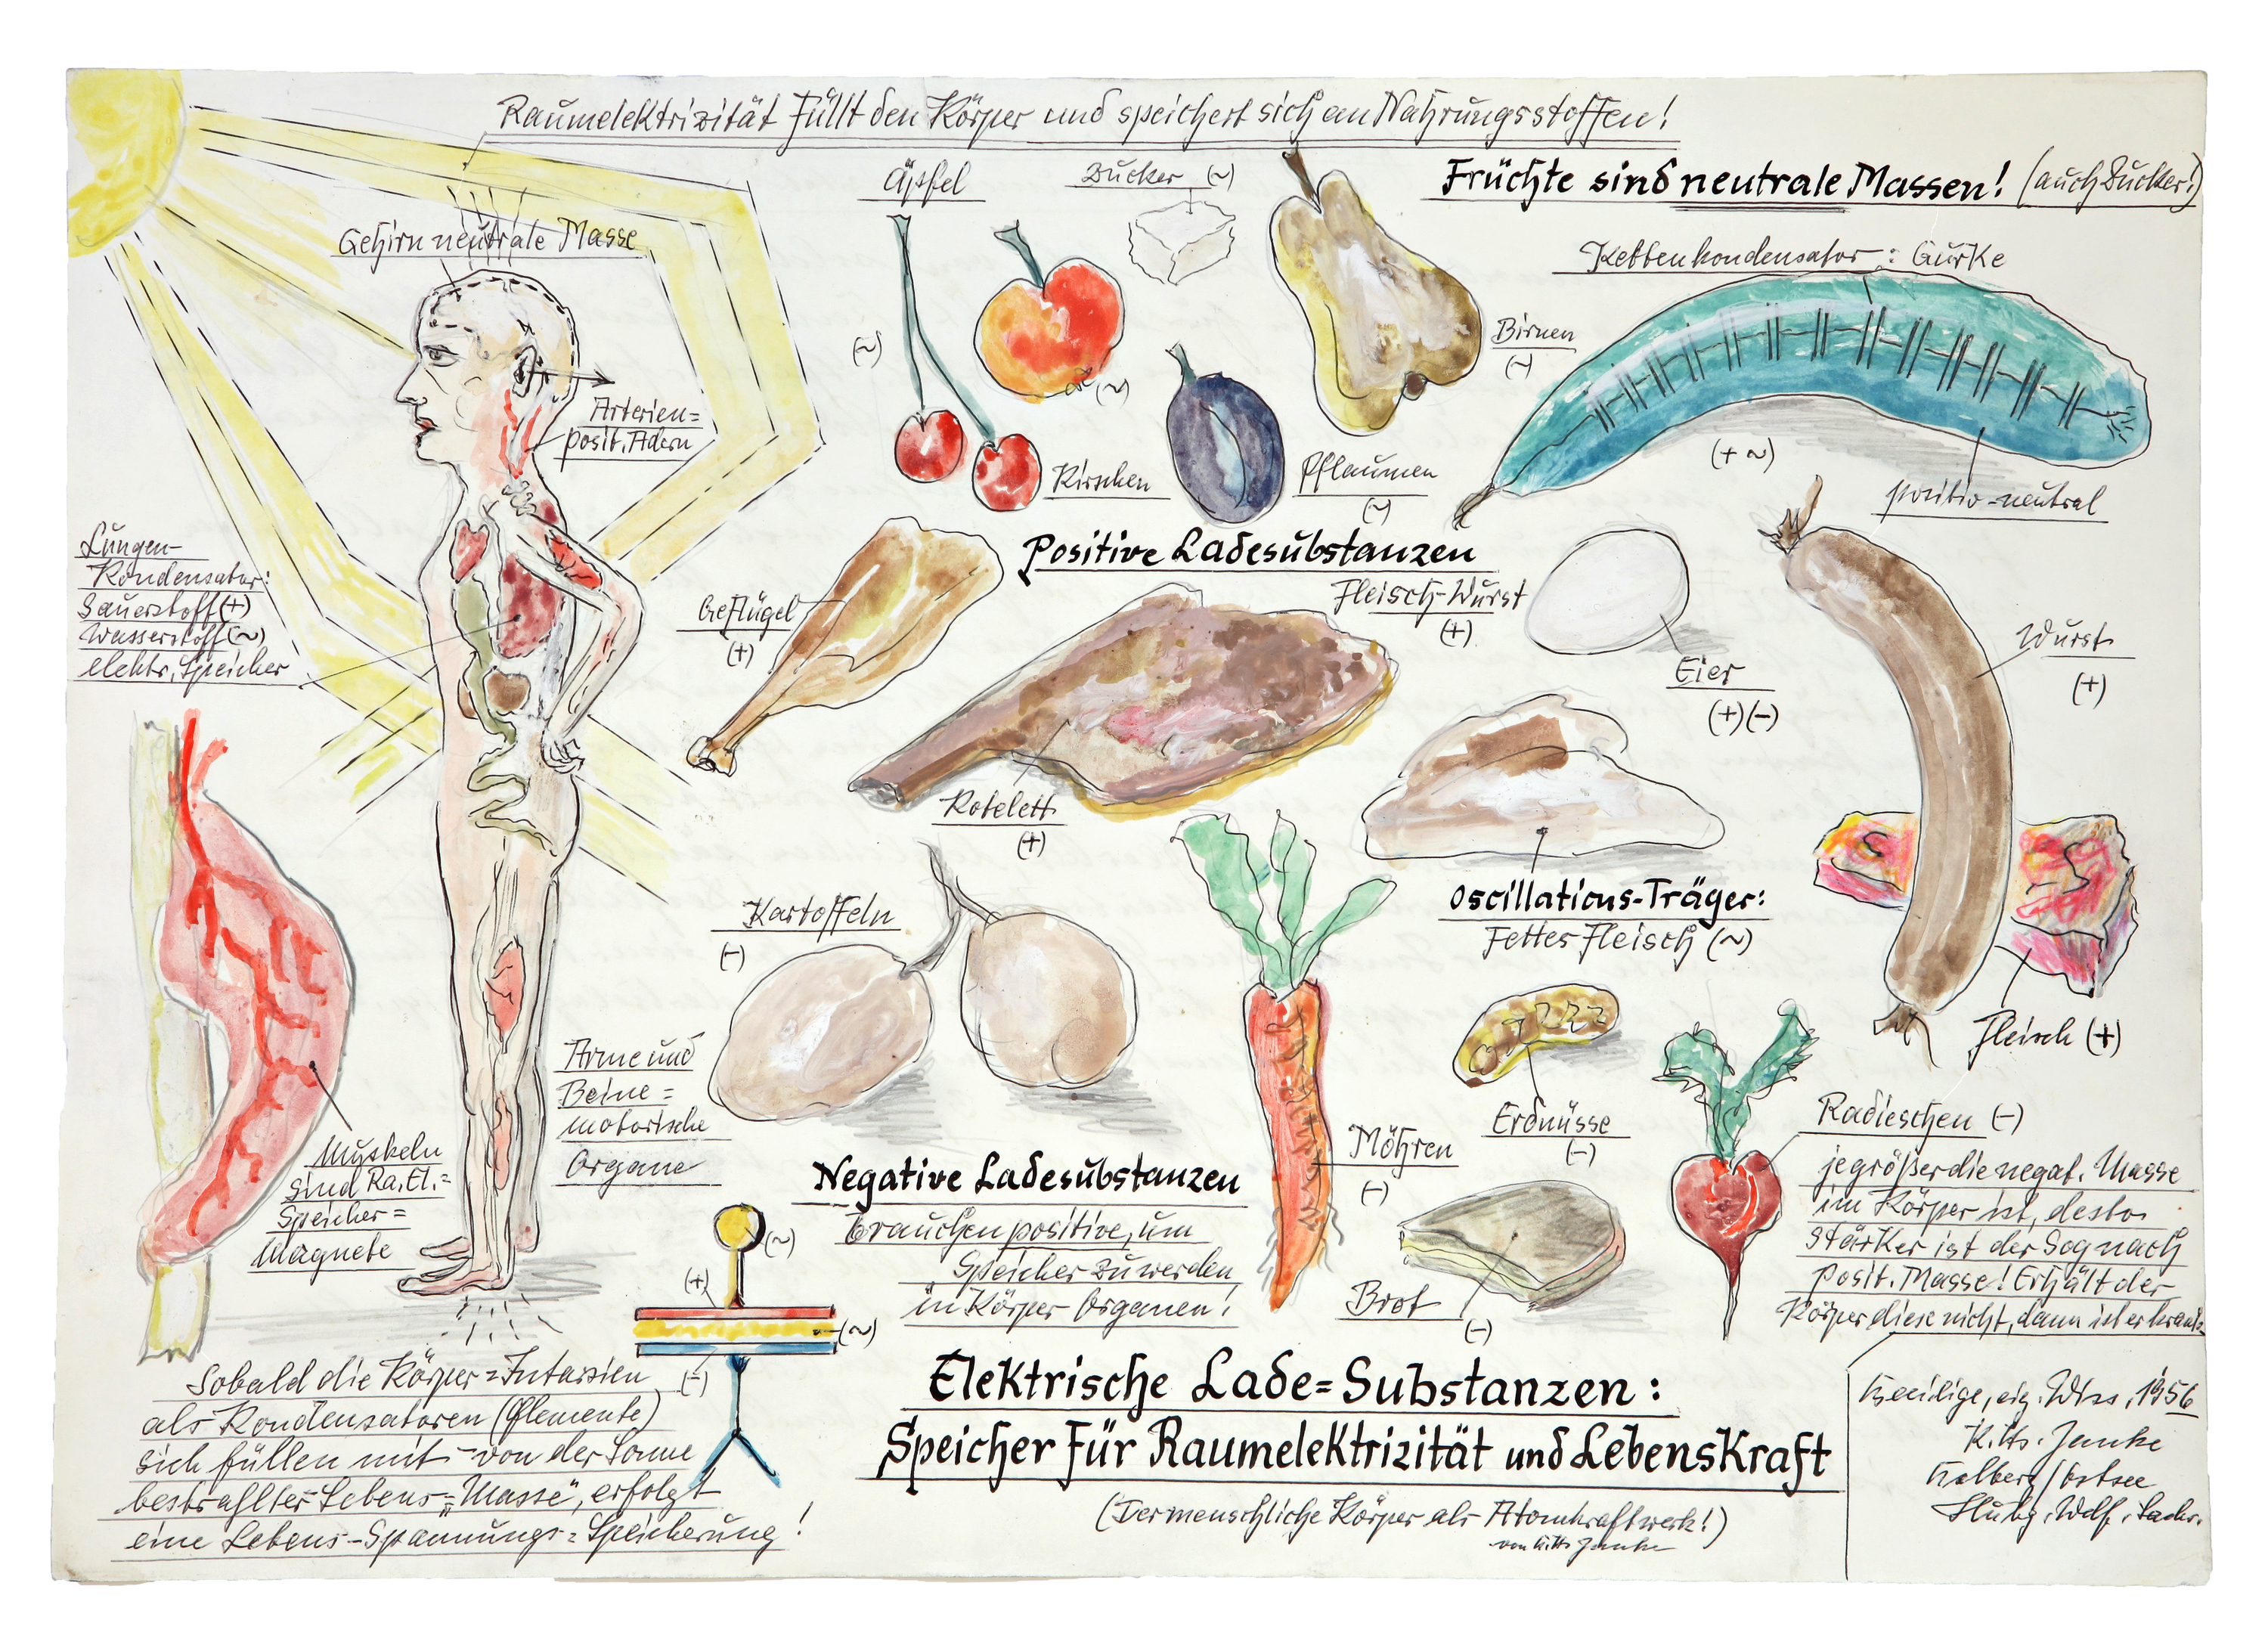 Raumelektrizität füllt den Körper und speichert sich an Nahrungsstoffen!
Äpfel
Zucker (~)
Früchte sind neutrale Massen! (auch Zucker!)
Gehirn neutrale Masse
Kettenkondensator: Gurke
(~)
(~)
Birnen
(~)
Arterien=
posit. Adern
(+ ~)
Kirschen
Pflaumen
(~)
positiv-neutral
Lungen-
Kondensator:
Sauerstoff (+)
Wasserstoff (~)
elektr. Speicher
Positive Ladesubstanzen
Fleisch-Wurst
(+)
Geflügel
(+)
Eier
(+)(-)
Wurst
(+)
Kotelett
(+)
Oscillations-Träger:
Fettes Fleisch (~)
Kartoffeln
(-)
Fleisch (+)
Arme und
Beine=
motorische
Organe
Erdnüsse
(-)
Möhren
(-)
Radieschen (-)
je größer die negat. Masse
im Körper ist, desto
stärker ist der Sog nach
posit. Masse! Erhält der
Körper diese nicht, dann ist er krank
Muskeln
sind Ra. El.=
Speicher=
Magnete
Negative Ladesubstanzen
brauchen positive, um
Speicher zu werden
in Körper-Organen!
Brot
(-)
(~)
(+)
(~)
(-)
Sobald die Körper=Intarsien
als Kondensatoren (Elemente)
sich füllen mit - von der Sonne
bestrahlter Lebens="Masse", erfolgt
eine Lebens-Spannungs=Speicherung!
Elektrische Lade=Substanzen:
Speicher für Raumelektrizität und Lebenskraft
(Der menschliche Körper als Atomkraftwerk!)
von Janke
eig. 1956
K. Hs. Janke
Kolberg/Ostsee
Hubg. Wdf. Sachs.